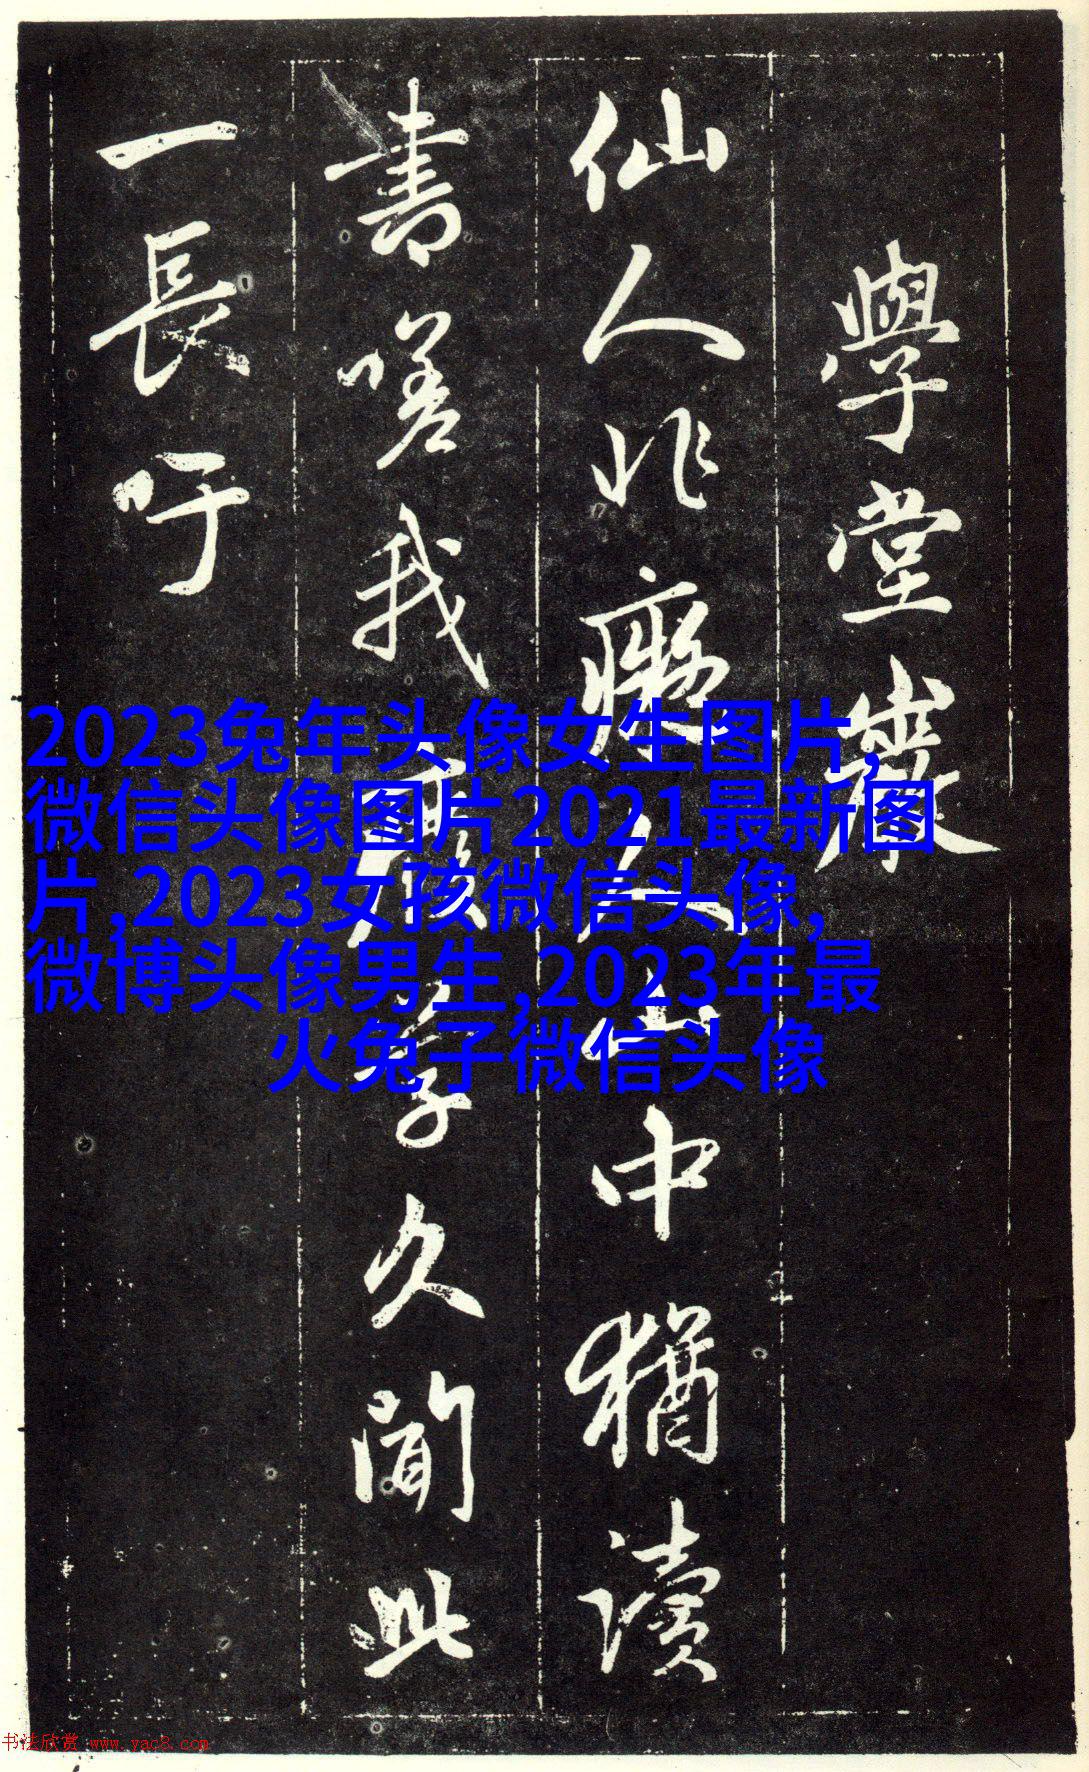 學堂巖
仙人非癡人山中猶讀
書嗟我廢學久聞此
一長吁
2023兔年头像女生图片,
微信头像图片2021最新图
片,2023女孩微信头像,
微博头像男生,2023年最
火兔子微信头像
书法欣赏 www.yac8.com